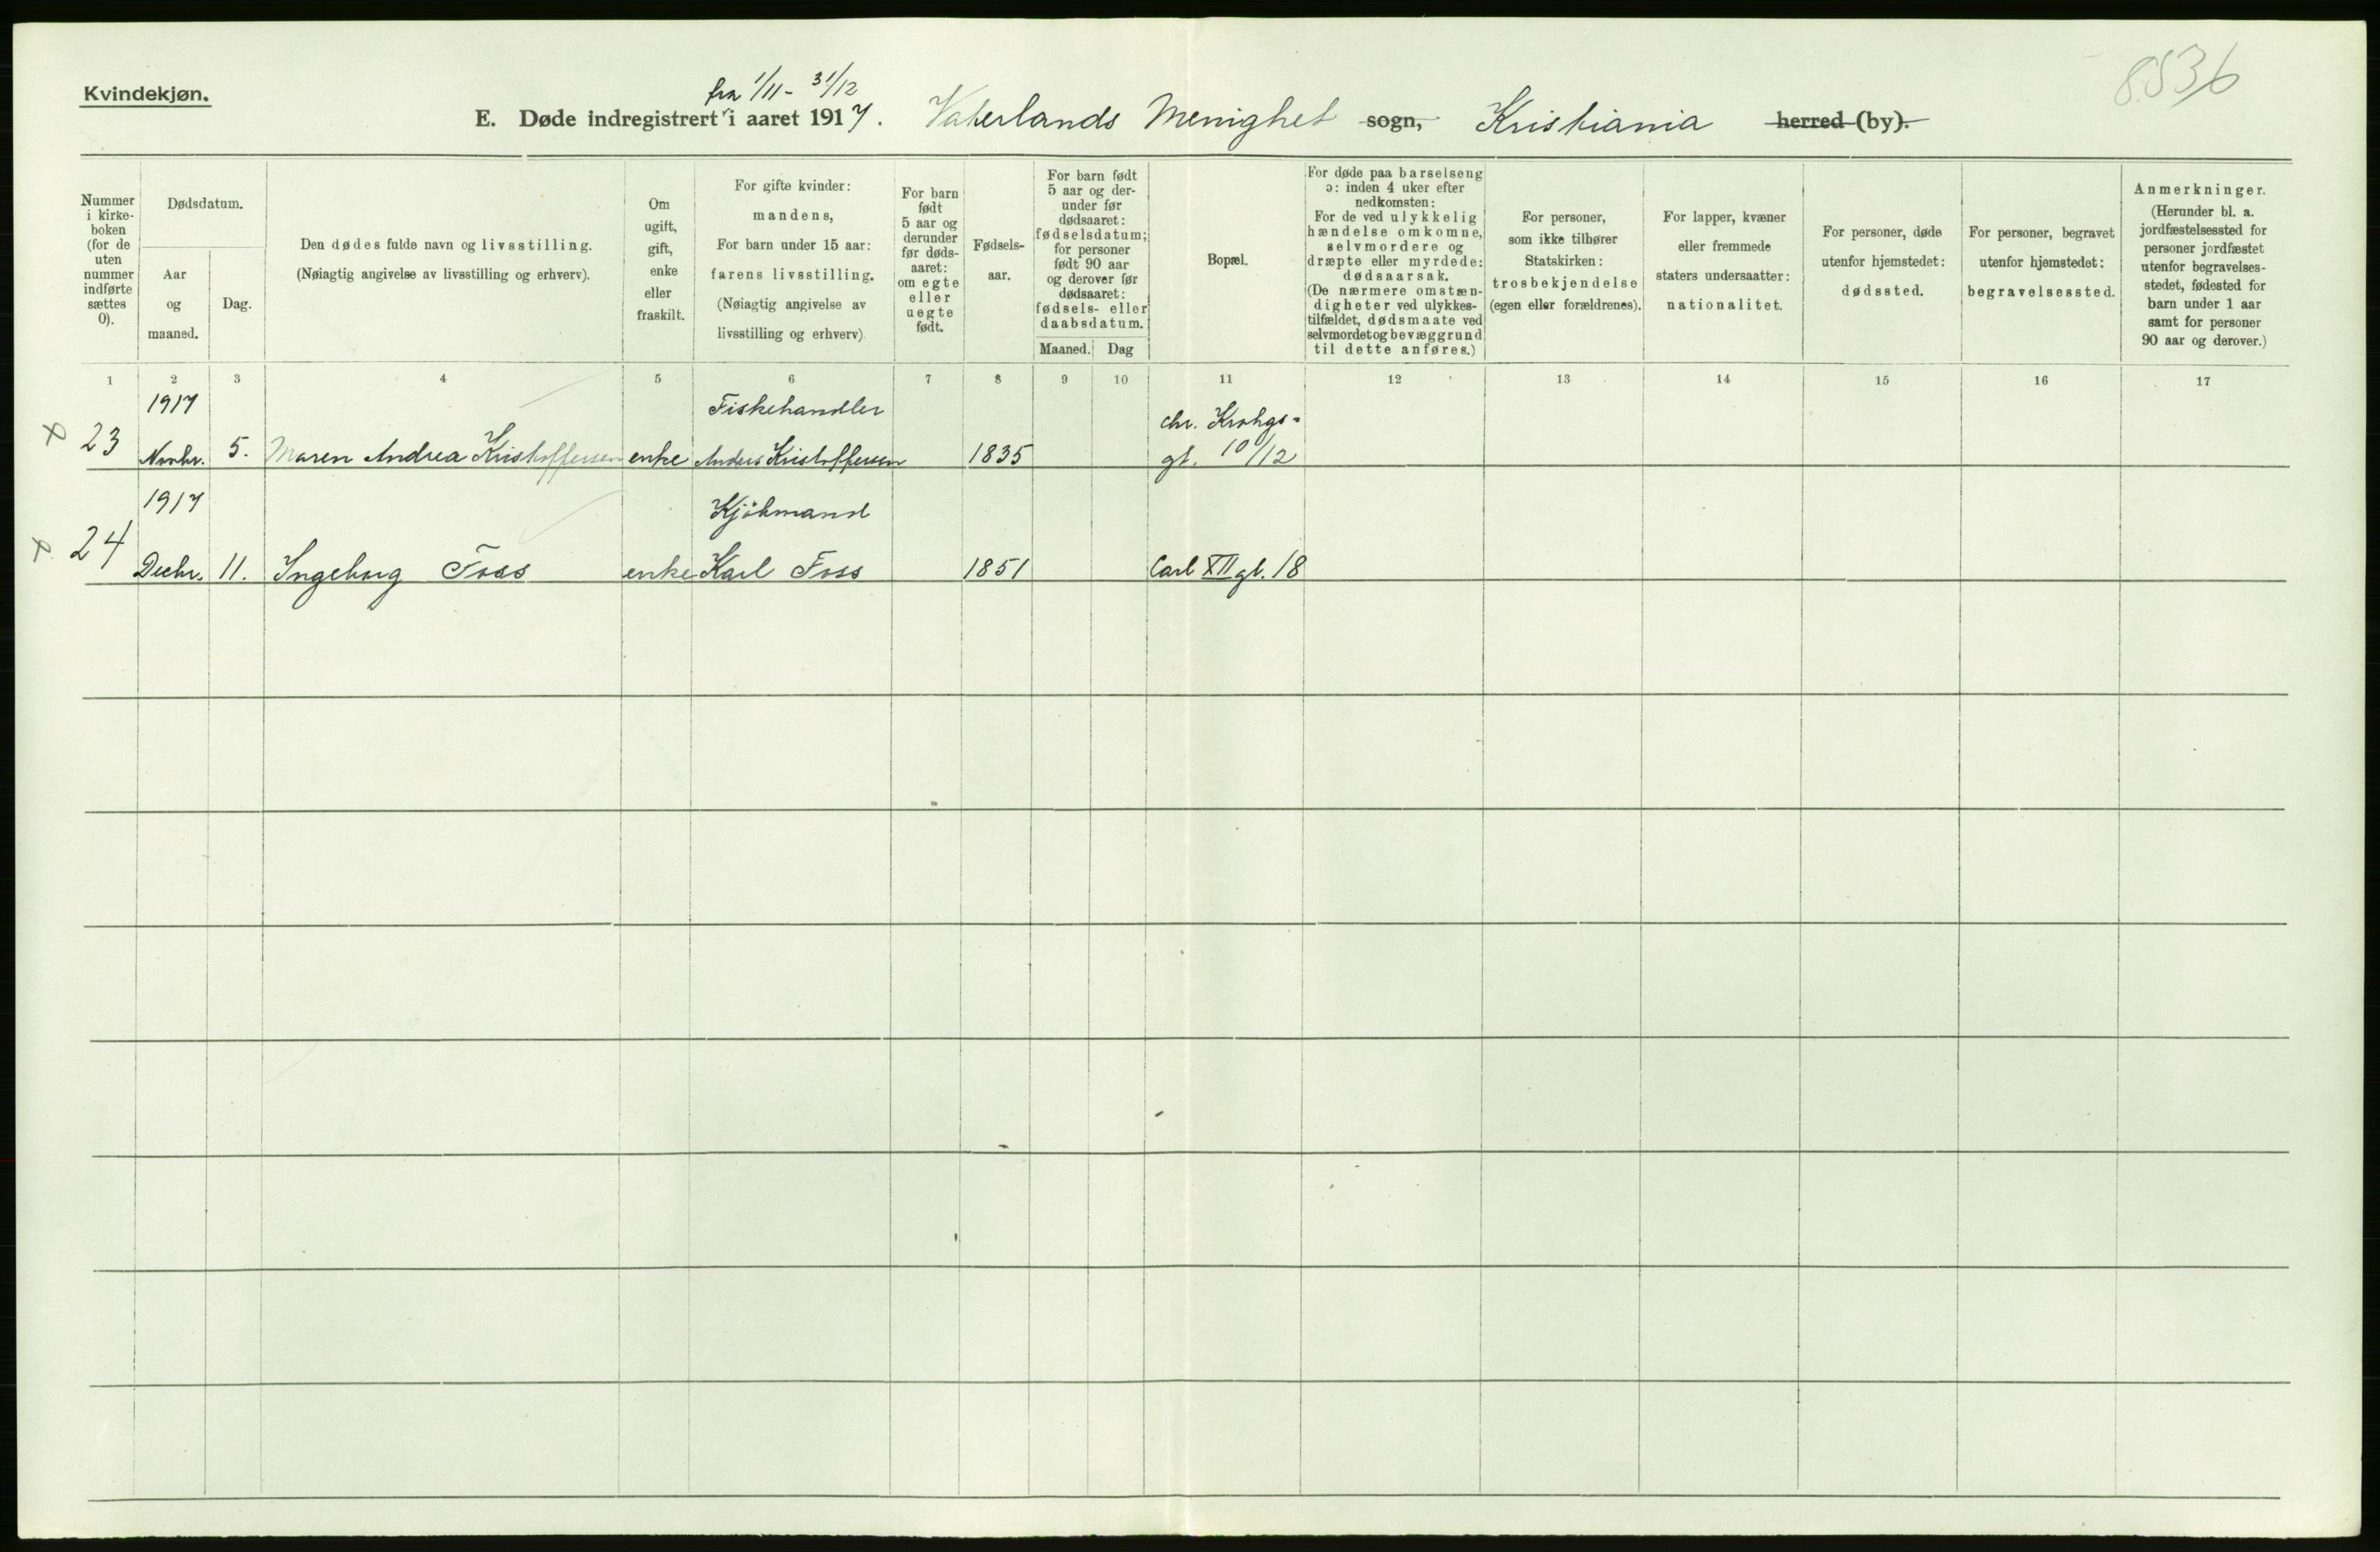 Kvindekjøn.
8536
fra 1/11 - 31/12
E. Døde indregistrert i aaret 1917. Vaterlands Menighet sogn, Kristiania herred (by).
Nummer
i kirke-
boken
(for de
uten
nummer
indførte
sættes
0).
Dødsdatum.
Aar
og
maaned.
Dag.
Den dødes fulde navn og livsstilling.
(Nøiagtig angivelse av livsstilling og erhverv).
Om
ugift,
gift,
enke
eller
fraskilt.
For gifte kvinder:
mandens,
For barn under 15 aar:
farens livsstilling.
(Nøiagtig angivelse av
livsstilling og erhverv).
For barn
født
5 aar og
derunder
før døds-
aaret:
om egte
eller
uegte
født.
Fødsels-
aar.
For barn født
5 aar og der-
under før
dødsaaret:
fødselsdatum;
for personer
født 90 aar
og derover før
dødsaaret:
fødsels- eller
daabsdatum.
Maaned. Dag
Bopæl.
For døde paa barselseng
ɔ: inden 4 uker efter
nedkomsten:
For de ved ulykkelig
hændelse omkomne,
selvmordere og
dræpte eller myrdede:
dødsaarsak.
(De nærmere omstæn-
digheter ved ulykkes-
tilfældet, dødsmaate ved
selvmordet og bevæggrund
til dette anføres.)
For personer,
som ikke tilhører
Statskirken:
trosbekjendelse
(egen eller forældrenes).
For lapper, kvæner
eller fremmede
staters undersaatter:
nationalitet.
For personer, døde
utenfor hjemstedet:
dødssted.
For personer, begravet
utenfor hjemstedet:
begravelsessted.
Anmerkninger.
(Herunder bl. a.
jordfæstelsessted for
personer jordfæstet
utenfor begravelses-
stedet, fødested for
barn under 1 aar
samt for personer
90 aar og derover.)
1 2 3 4 5 6 7 8 9 10 11 12 13 14 15 16 17
1917 Fiskehandler Chr. Krohgs-
x 23 Novbr. 5. Maren Andrea Kristoffersen enke Anders Kristoffersen 1835 gt. 10/12
1917 Kjøbmand
x 24 Decbr. 11. Ingeborg Foss enke Karl Foss 1851 Carl XII gt. 18